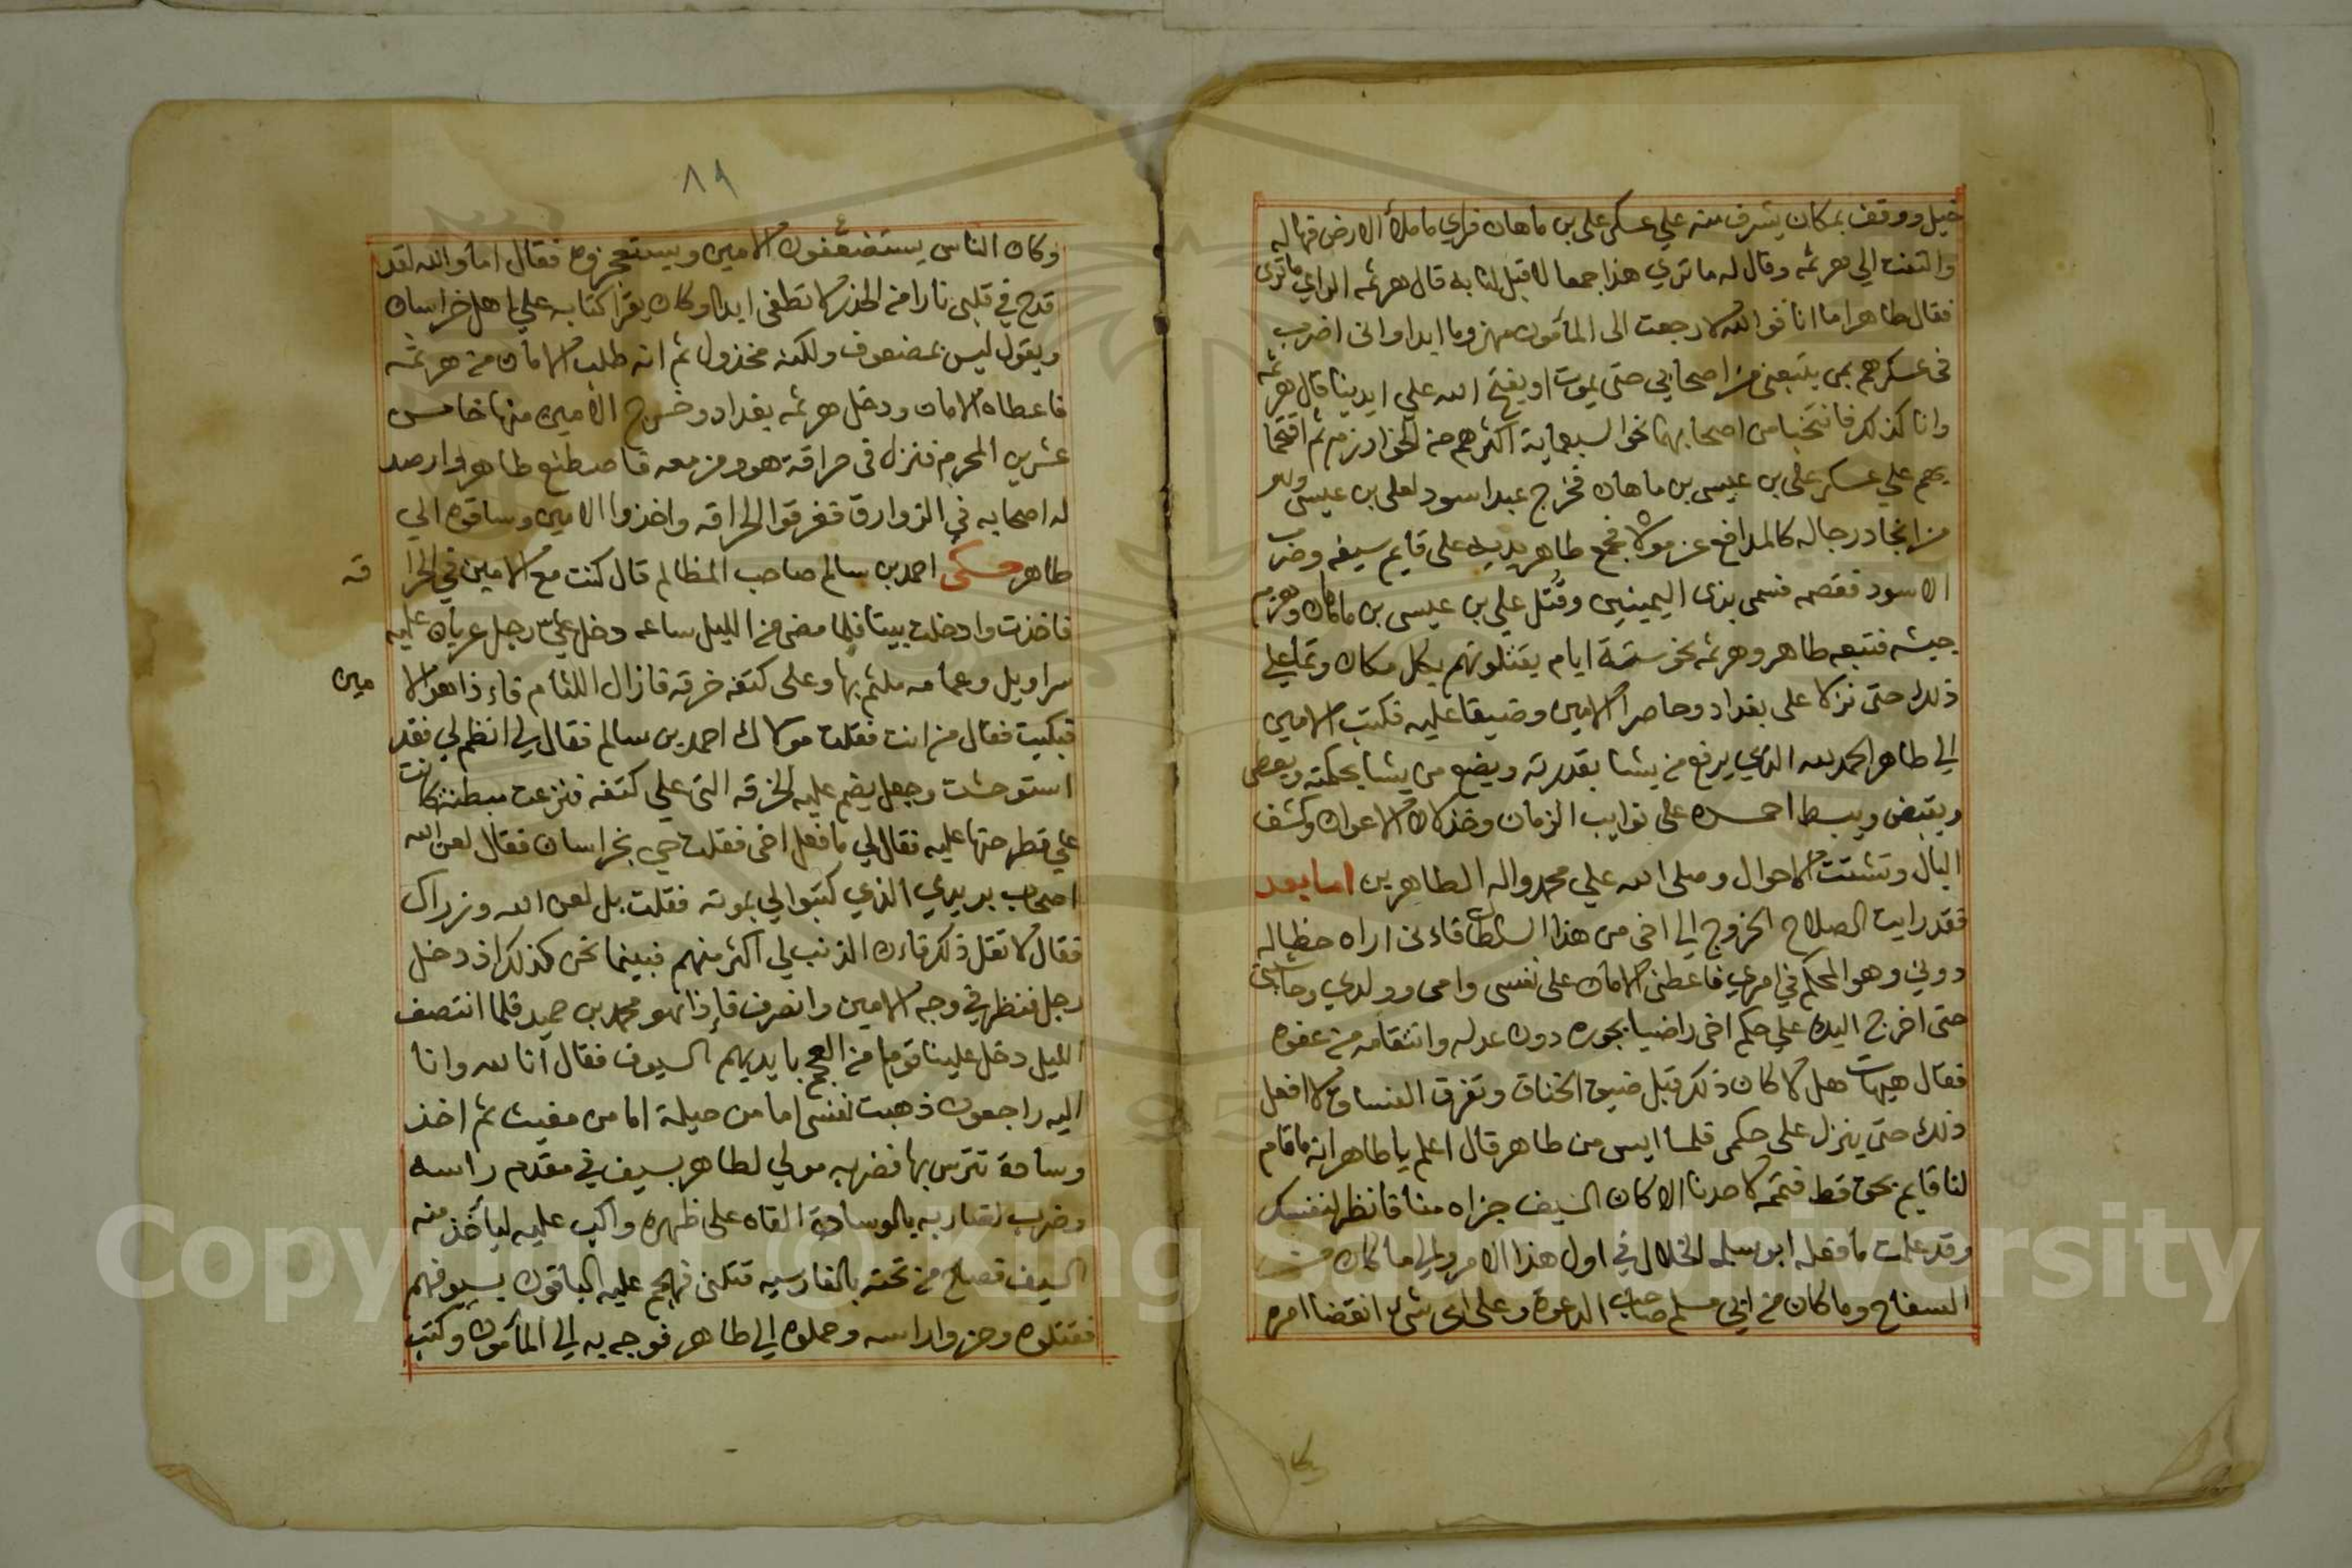 خيل ووقف بمكان يشرف منه علي عسكر علي بن ماهان فراي ما ملأ الارض فهاله
والتفت الي هرثمه وقال له ما تري هذا جمعا لا قبل لنا به قال هرثمه الراي ما تري
فقال طاهر اما انا فوالله لا رجعت الى المأمون مهزوما ابدا وانى اضرب
فى عسكرهم بمن يتبعنى من اصحابي حتى يموت او يفتح الله علي ايدينا قال هرثمه
وانا كذلك فانتخبا من اصحابهما نحو السبعماية اكثرهم من الخوارزم ثم اقتحما
بهم علي عسكر علي بن عيسى بن ماهان فخرج عبد اسود لعلى بن عيسى وهو
من انجاد رجاله كالمدافع عن مولاه فجمع طاهر يديه على قايم سيفه وضرب
الاسود فقصمه فسمى بذى اليمينين وقتل علي بن عيسى بن ماهان وهزم
جيشه فتبعه طاهر وهرثمه نحو ستة ايام يقتلونهم بكل مكان وتما علي
ذلك حتى نزلا على بغداد وحاصرا الامين وضيقا عليه فكتب الامين
الي طاهر الحمد لله الذي يرفع من يشا بقدرته ويضع من يشا بحكمته ويعطى
ويقبض ويبسط احمده على نوايب الزمان وخذلان الاعوان وكشف
البال وتشتت الاحوال وصلى الله علي محمد واله الطاهرين اما بعد
فقد رايت الصلاح الخروج الي اخى من هذا السلطان فاءنى اراه حظا له
دوني وهو المحكم في امري فاعطنى الامان على نفسى وامى وولدي وحاشيتى
حتى اخرج اليك علي حكم اخى راضيا بجوره دون عدله وانتقامه من عفوه
فقال هيهات هل لا كان ذلك قبل ضيق الخناق وتفرق الفساق لا افعل
ذلك حتى ينزل على حكمى فلما ايس من طاهر قال اعلم يا طاهر انه ما قام
لنا قايم بحق قط فتمه لاحدنا الا كان السيف جزاه منا فانظر لنفسك
وقد علمت ما فعله ابو سلمه الخلال في اول هذا الامر والي ما كان من
السفاح وما كان من ابي مسلم صاحب الدعوة وعلى اى شئ انقضا امره
٨٩
وكان الناس يستضعفون الامين ويستعجزوه فقال اما والله لقد
قدح في قلبى نارا من الحذر لا تطفى ابدا وكان يقرا كتابه علي اهل خراسان
ويقول ليس بمضعوف ولكنه مخذول ثم انه طلب الامان من هرثمه
فاعطاه الامان ودخل هرثمه بغداد وخرج الامين منها خامس
عشرين المحرم فنزل فى حراقة هو ومن معه فاصطنع طاهر وارصد
له اصحابه في الزوارق فغرقوا الحراقه واخذوا الامين وساقوه الي
طاهر حكى احمد بن سالم صاحب المظالم قال كنت مع الامين في الحرا قه
فاخذت وادخلت بيتا فلما مضى من الليل ساعه دخل علي رجل عريان عليه
سراويل وعمامه ملثم بها وعلى كتفه خرقه فازال اللثام فاءذا هو الا مين
فبكيت فقال من انت فقلت مولاك احمد بن سالم فقال لي انظم لي فقد
استوحشت وجعل يضم عليه الخرقه التى علي كتفه فنزعت مبطنة كانت
علي فطرحتها عليه فقال لي ما فعل اخى فقلت حي بخراسان فقال لعن الله
اصحاب بريدي الذي كتبوا لي بموته فقلت بل لعن الله وزراك
فقال لا تقل ذلك فاءن الذنب لي اكثر منهم فبينما نحن كذلك اذ دخل
رجل فنظر في وجه الامين وانصرف فإذا هو محمد بن حميد فلما انتصف
الليل دخل علينا قوما من العجم بايديهم السيوف فقال أنا لله وانا
اليه راجعون ذهبت نفسى اما من حيلة اما من مغيث ثم اخذ
وسادة تترس بها فضربه مولي لطاهر بسيف في مقدم راسه
وضرب لضاربه بالوسادة القاه على ظهره واكب عليه ليأخذ منه
السيف فصاح من تحته بالفارسيه قتلنى فهجم عليه الباقون بسيوفهم
فقتلوه وحزوا راسه وحملوه الي طاهر فوجه به الي المأمون وكتب
وكا
Copyright © King Saud University